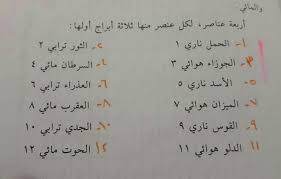 والمائي
أربعة عناصر، لكل عنصر منها ثلاثة أبراج أولها:
١- الحمل ناري ١ ٢- الثور ترابي ٢
٣- الجوزاء هوائي ٣ ٤- السرطان مائي ٤
٥- الأسد ناري ٥ ٦- العذراء ترابي ٦
٧- الميزان هوائي ٧ ٨- العقرب مائي ٨
٩- القوس ناري ٩ ١٠- الجدي ترابي ١٠
١١ الدلو هوائي ١١ ١٢ الحوت مائي ١٢